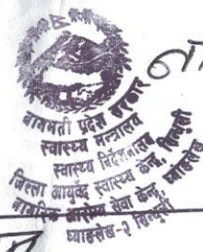 बागमती प्रदेश सरकार
स्वास्थ्य मन्त्रालय
स्वास्थ्य निर्देशनालय
जिल्ला आयुर्वेद स्वास्थ्य केन्द्र, सिन्धुली
नागरिक आरोग्य सेवा केन्द्र,
घ्याङलेख-२ सिन्धुली